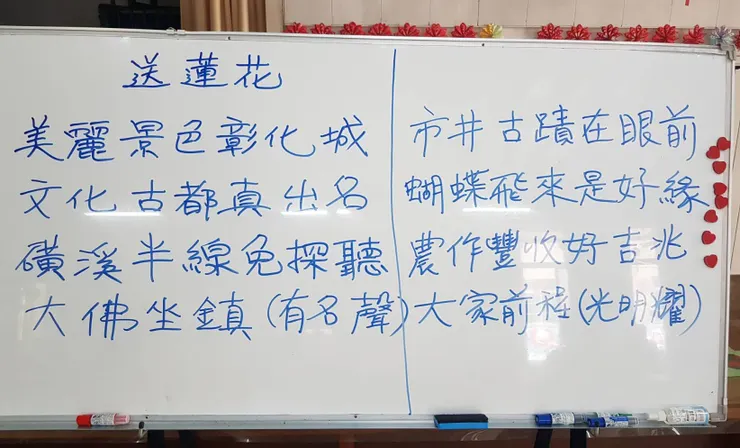 送蓮花
美麗景色彰化城
文化古都真出名
磺溪半線免探聽
大佛坐鎮(有名聲)
市井古蹟在眼前
蝴蝶飛來是好緣
農作豐收好吉兆
大家前程(光明耀)